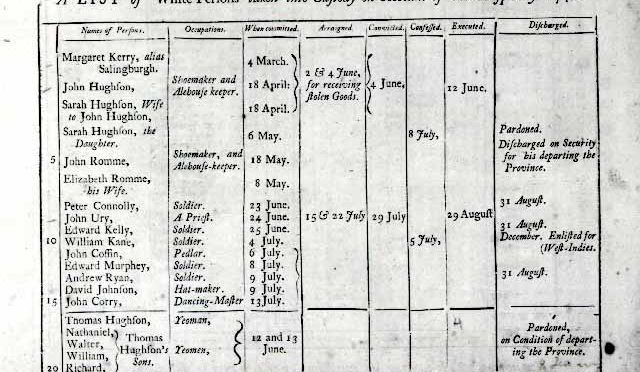 A LIST of White Persons taken into Custody on
Names of Persons. Occupations. When committed. Arraigned. Convicted. Confessed. Executed. Discharged.
Margaret Kerry, alias
Salingburgh. 4 March.
John Hughſon, Shoemaker and
Alehouſe keeper. 18 April: 2 & 4 June,
for receiving
ſtolen Goods. 4 June, 12 June.
Sarah Hughſon, Wife
to John Hughſon, 18 April.
Sarah Hughſon, the
Daughter. 6 May. 8 July, Pardoned.
5 John Romme, Shoemaker, and
Alehouſe-keeper. 18 May. Diſcharged on Security
for his departing the
Province.
Elizabeth Romme,
his Wife. 8 May.
Peter Connolly, Soldier. 23 June. 31 Auguſt.
John Ury, A Prieſt. 24 June. 15 & 22 July 29 July 29 Auguſt
Edward Kelly, Soldier. 25 June. 31 Auguſt.
10 William Kane, Soldier. 4 July. 5 July, December. Enliſted for
(Weſt-Indies.
John Coffin, Pedlar. 6 July.
Edward Murphey, Soldier. 8 July.
Andrew Ryan, Soldier. 9 July. 31 Auguſt.
David Johnſon, Hat-maker. 9 July.
15 John Corry, Dancing-Maſter 13 July.
Thomas Hughſon, Yeoman,
Nathaniel,
Walter,
William,
20 Richard, Thomas
Hughſon's
Sons. Yeomen, 12 and 13
June. Pardoned,
on Condition of depart-
ing the Province.